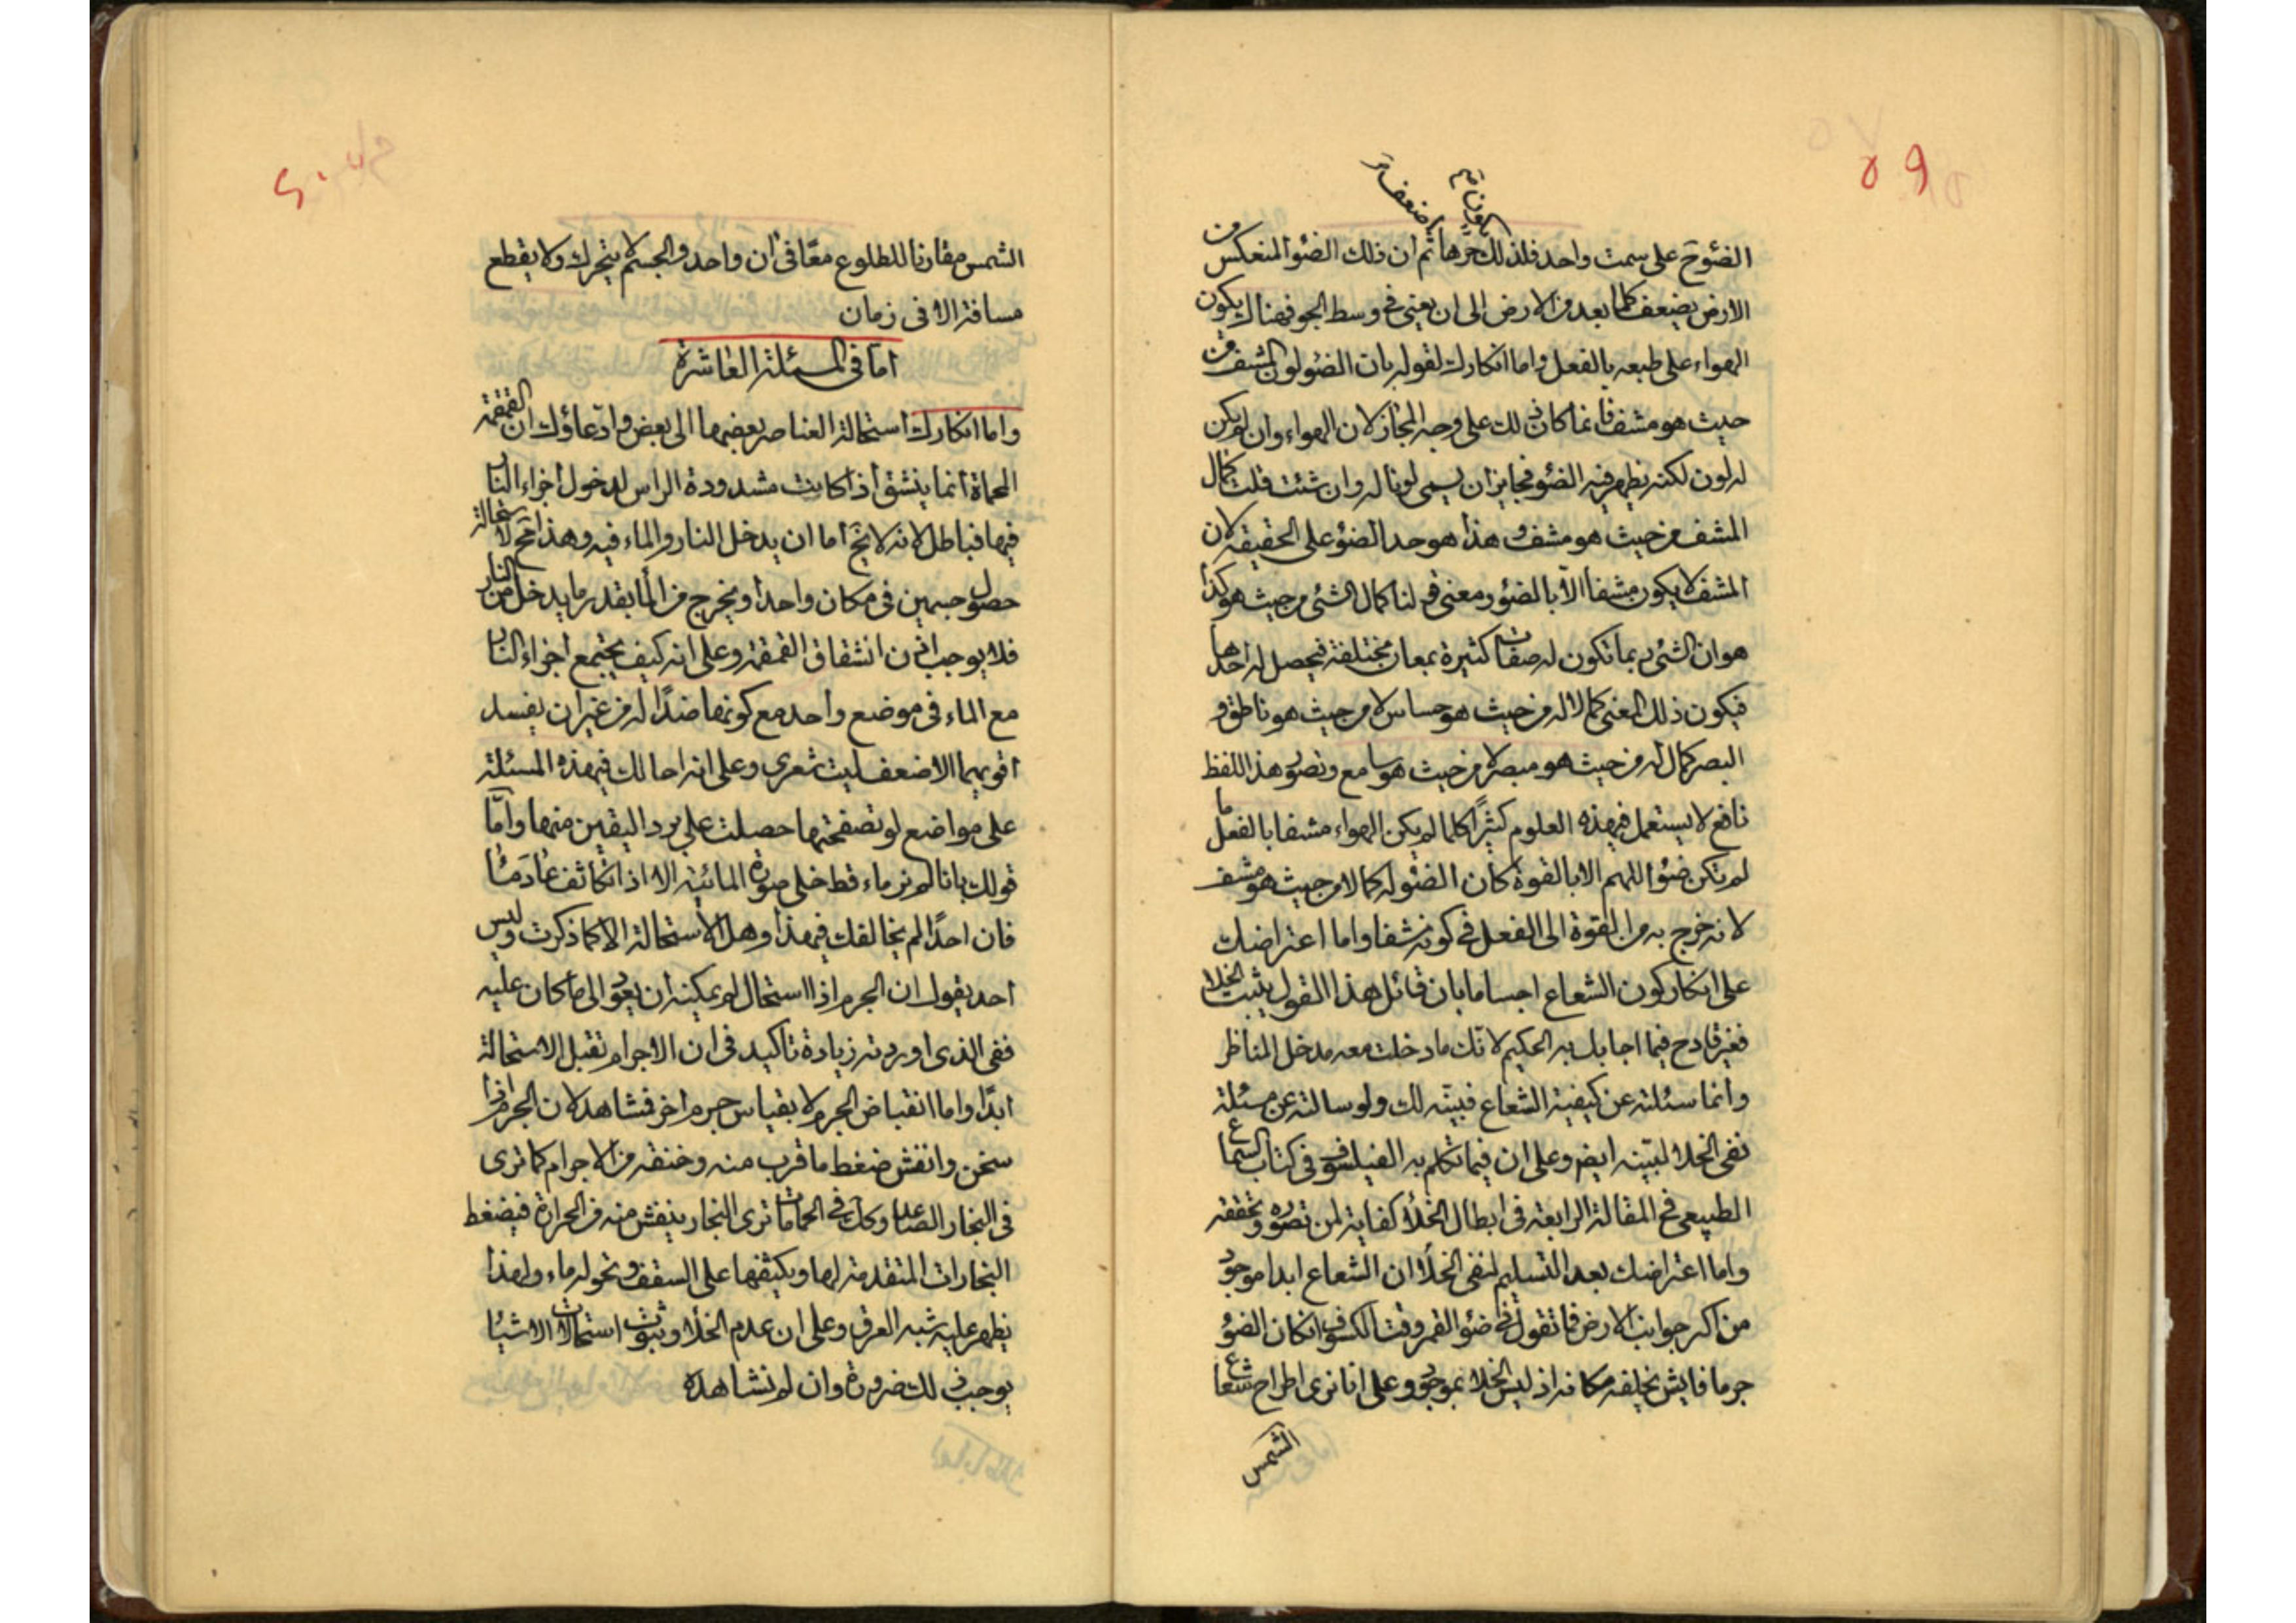 ٥٩
يكون ثم
اضعف ثم
الضوء ح على سمت واحد فلذلك حرها ثم ان ذلك الضوء المنعكس من
الارض يضعف كلما بعد من الارض الى ان يفنى فى وسط الجو فهناك يكون
الهواء على طبعه بالفعل واما انكارك لقوله بان الضوء لون المشف من
حيث هو مشف فانما كان ذلك على وجه المجاز لان الهواء وان لم يكن
له لون لكنه يظهر فيه الضوء فجايز ان يسمى لونا له وان شئت قلت كمال
المشف من حيث هو مشف وهذا هو حد الضوء على الحقيقه لان
المشف لا يكون مشفا الّا بالضوء ومعنى قولنا كمال الشئ من حيث هو كذا
هو ان الشئ ربما تكون له صفات كثيرة بمعان مختلفة فيحصل له احدها
فيكون ذلك المعنى كمالا له من حيث هو حساس لا من حيث هو ناطق و
البصر كمال له من حيث هو مبصر لا من حيث هو سامع وتصور هذا اللفظ
نافع لا يستعمل فى هذه العلوم كثيرًا كلما لم يكن الهواء مشفا بالفعل ما
لم تكن ضوء اللهم الا بالقوة كان الضوء له كمالا من حيث هو مشف
لانه خرج به من القوة الى الفعل فى كونه مشفا واما اعتراضك
على انكار كون الشعاع اجساما بان قائل هذا القول يثبت الخلا
فغير قادح فيما اجابك به الحكيم لانّك ما دخلت معه مدخل المناظر
وانما سئلته عن كيفية الشعاع فبيّنه لك ولو سالته عن مسئلة
نفى الخلا لبيّنه ايضا وعلى ان فيما تكلم به الفيلسوف فى كتاب السماع
الطبيعى فى المقالة الرابعة فى ابطال الخلا كفاية لمن تصوره وتحققه
واما اعتراضك بعد التسليم لنفى الخلا ان الشعاع ابدا موجود
من اكر جوانب الارض فما تقول فى ضوء القمر وقت الكسوف ان كان الضوء
جرما فايش يخلفه مكانه اذ ليس الخلا بموجود وعلى انا نرى اطراح شعاع
الشمس
الشمس مقارنا للطلوع معًا فى ان واحد والجسم لا يتحرك ولا يقطع
مسافة الا فى زمان
اما فى المسئلة العاشرة
واما انكارك استحالة العناصر بعضها الى بعض وادعاؤك ان القمقمة
المحماة انما ينشق اذا كانت مشدودة الراس لدخول اجزاء النار
فيها فباطل لانه لا يخ اما ان يدخل النار والماء فيه وهذا مح لاستحالة
حصول جسمين فى مكان واحد او يخرج من الما بقدر ما يدخل من النار
فلا يوجب اذن انشقاق القمقمة وعلى انه كيف يجتمع اجزاء النار
مع الماء فى موضع واحد مع كونها ضدًا له من غير ان يفسد
اقويهما الاضعف ليت شعرى وعلى انه احالك فى هذه المسئلة
على مواضع لو تصفحتها حصلت على برد اليقين منها وامّا
قولك بانا لم نر ماء قط خلى صورة المائية الا اذا تكاثف عاد ماءً
فان احدًا لم يخالفك فى هذا وهل الاستحالة الا كما ذكرت وليس
احد يقول ان الجرم اذا استحال لم يمكنه ان يعود الى ما كان عليه
ففى الذى اوردته زيادة تاكيد فى ان الاجرام تقبل الاستحالة
ابدًا واما انقباض الجرم لا بقياس جرم اخر فشاهد لان الجرم اذا
سخن وانفش ضغط ما قرب منه وخنقه من الاجرام كما نرى
فى البخار الصاعد وكك فى الحمامات نرى البخار ينفش منه فى الحرارة فيضغط
البخارات المتقدمة لها ويكثفها على السقف وتحوله ماء ولهذا
يظهر عليه شبه العرق وعلى ان عدم الخلا وثبوت استحالات الاشيا
يوجب ذلك ضرورة وان لم نشاهده